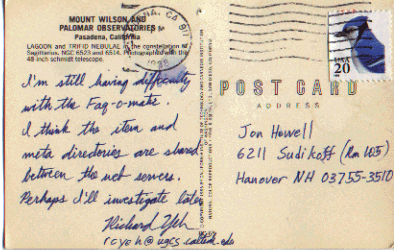 MOUNT WILSON AND
PALOMAR OBSERVATORIES
Pasadena, California
LAGOON and TRIFID NEBULAE in the constellation of
Sagittarius. NGC 6523 and 6514. Photographed with the
48 inch schmidt telescope.
I'm still having difficulty
with the Faq-o-matic.
I think the item and
meta directories are shared
between the web servers.
Perhaps I'll investigate later.
Richard Yeh
rcyeh@ugcs.caltech.edu
CA 911
1998
USA
20
POST CARD
ADDRESS
Jon Howell
6211 Sudikoff (Rm 105)
Hanover NH 03755-3510